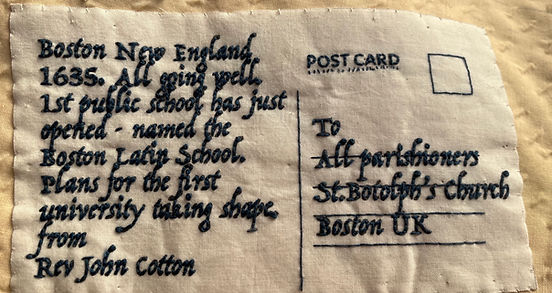 Boston New England
1635. All going well.
1st public school has just
opened - named the
Boston Latin School.
Plans for the first
university taking shape.
from
Rev John Cotton
POST CARD
To
All parishioners
St.Botolph's Church
Boston UK